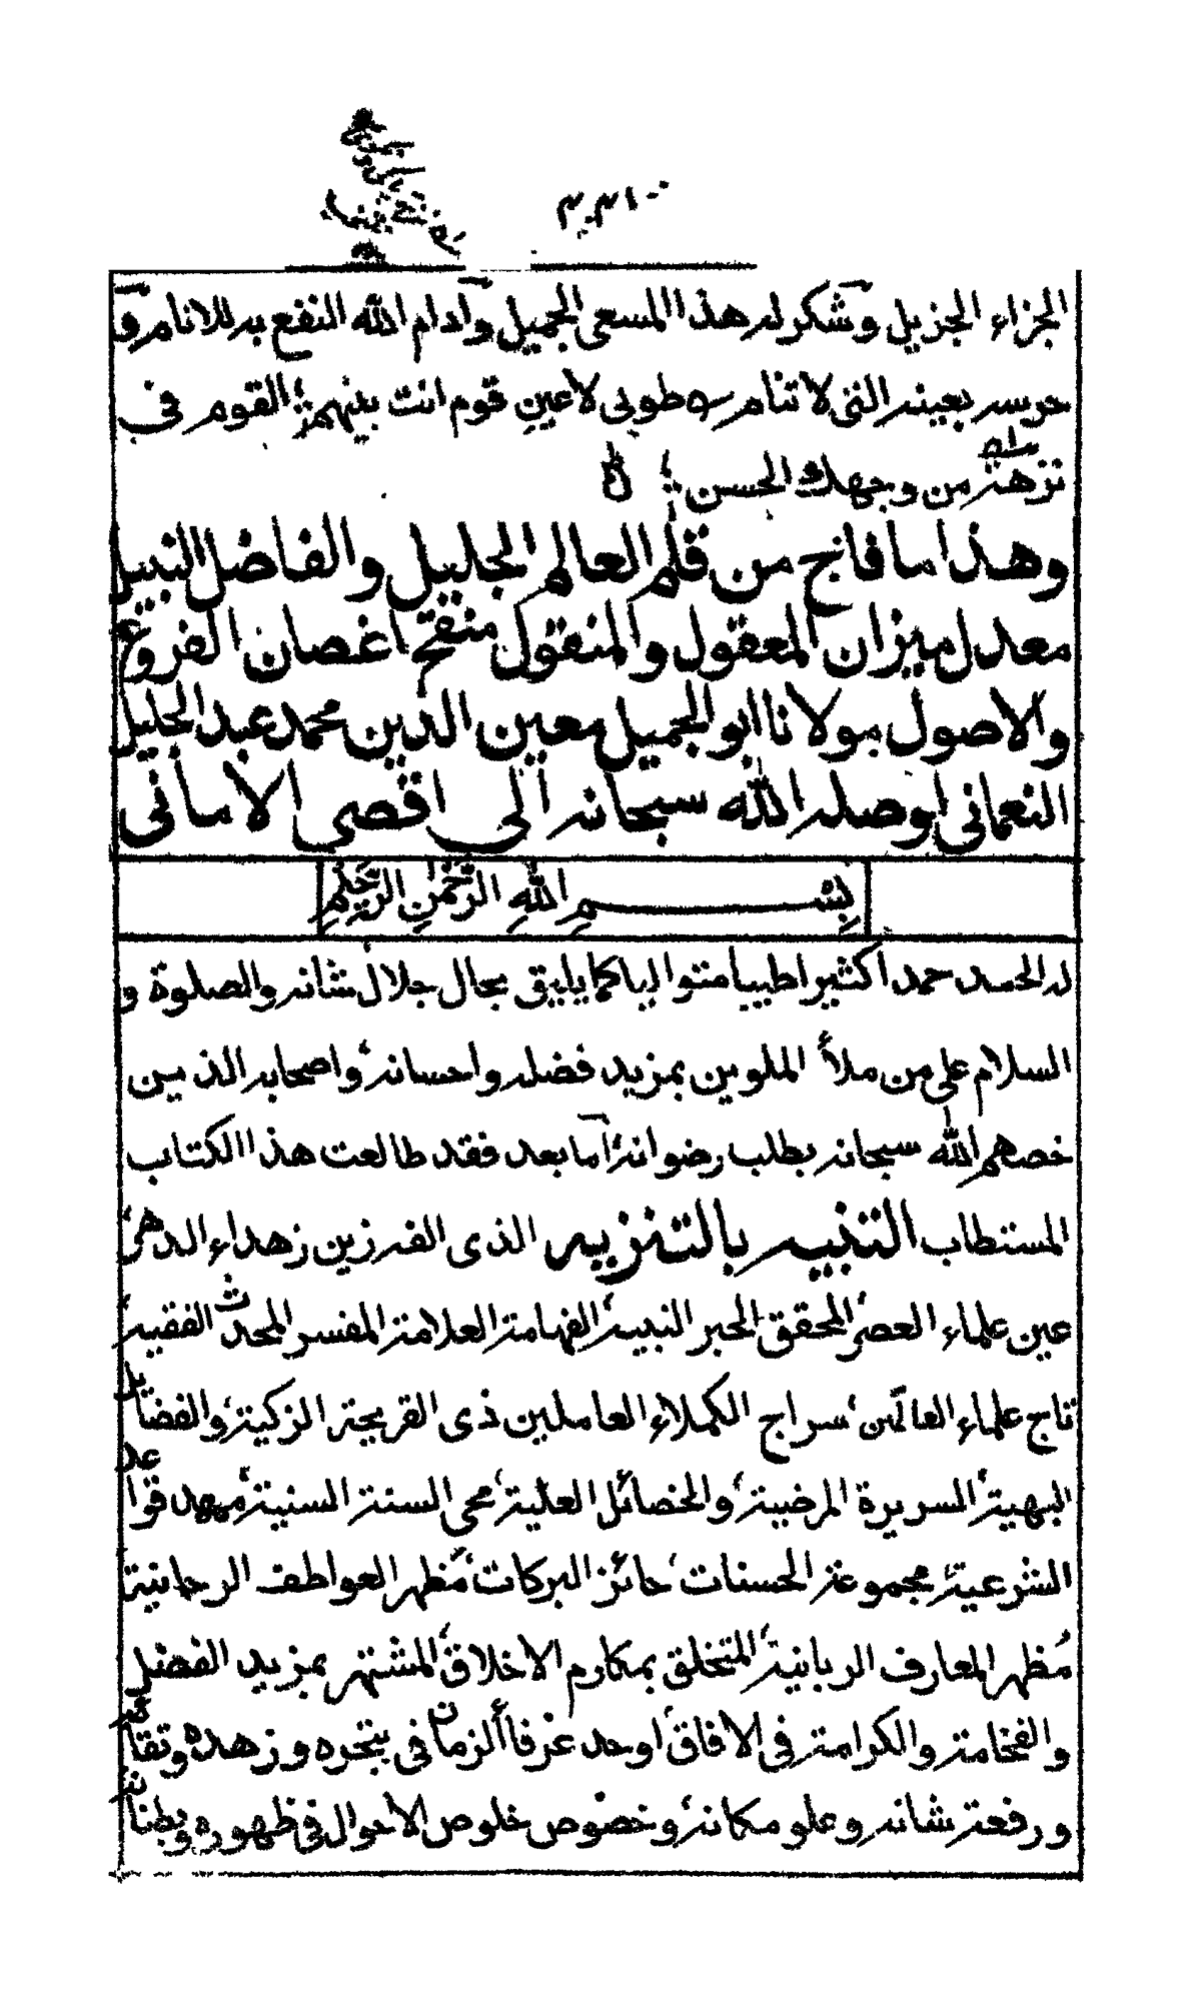 الجزاء الجزيل وشكر له هذا المسعى الجميل وادام الله النفع به للانام و
حرسه بعينه التى لا تنام ه طوبى لاعين قوم انت بينهم؛ القوم فى
نزهة من وجهك الحسن؛
وهذا ما فاح من قلم العالم الجليل والفاضل النبيل
معدل ميزان المعقول والمنقول منقح اغصان الفروع
والاصول مولانا ابو الجميل معين الدين محمد عبد الجليل
النعمانى اوصله الله سبحانه الى اقصى الامانى
بسم الله الرحمن الرحيم
له الحمد حمدا كثيرا طيبا متواليا كما يليق بجال جلال شانه والصلوة و
السلام على من ملأ الملوين بمزيد فضله واحسانه، واصحابه الذين
خصهم الله سبحانه بطلب رضوانه، اما بعد فقد طالعت هذا الكتاب
المستطاب التنبيه بالتنزيه الذى الفه زين زهداء الدهر،
عين علماء العصر، المحقق الحبر النبيه، الفهامة العلامة المفسر المحدث الفقيه،
تاج علماء العالمين، سراج الكملاء العاملين ذى القريحة الزكية، والفضايل
البهية، السريرة المرضية، والخصائل العلية، محى السنة السنية، ممهد قواعد
الشرعية، مجموعة الحسنات، حائز البركات، مظهر العواطف الرحمانية
مُظهر المعارف الربانية، المتخلق بمكارم الاخلاق، المشتهر بمزيد الفضل
والفخامة والكرامة فى الافاق، اوحد عرفاء الزمان فى تبحره وزهده وتقائه
ورفعة شانه وعلو مكانه، وخصوص خلوص الاحوال فى ظهوره وبطنانه